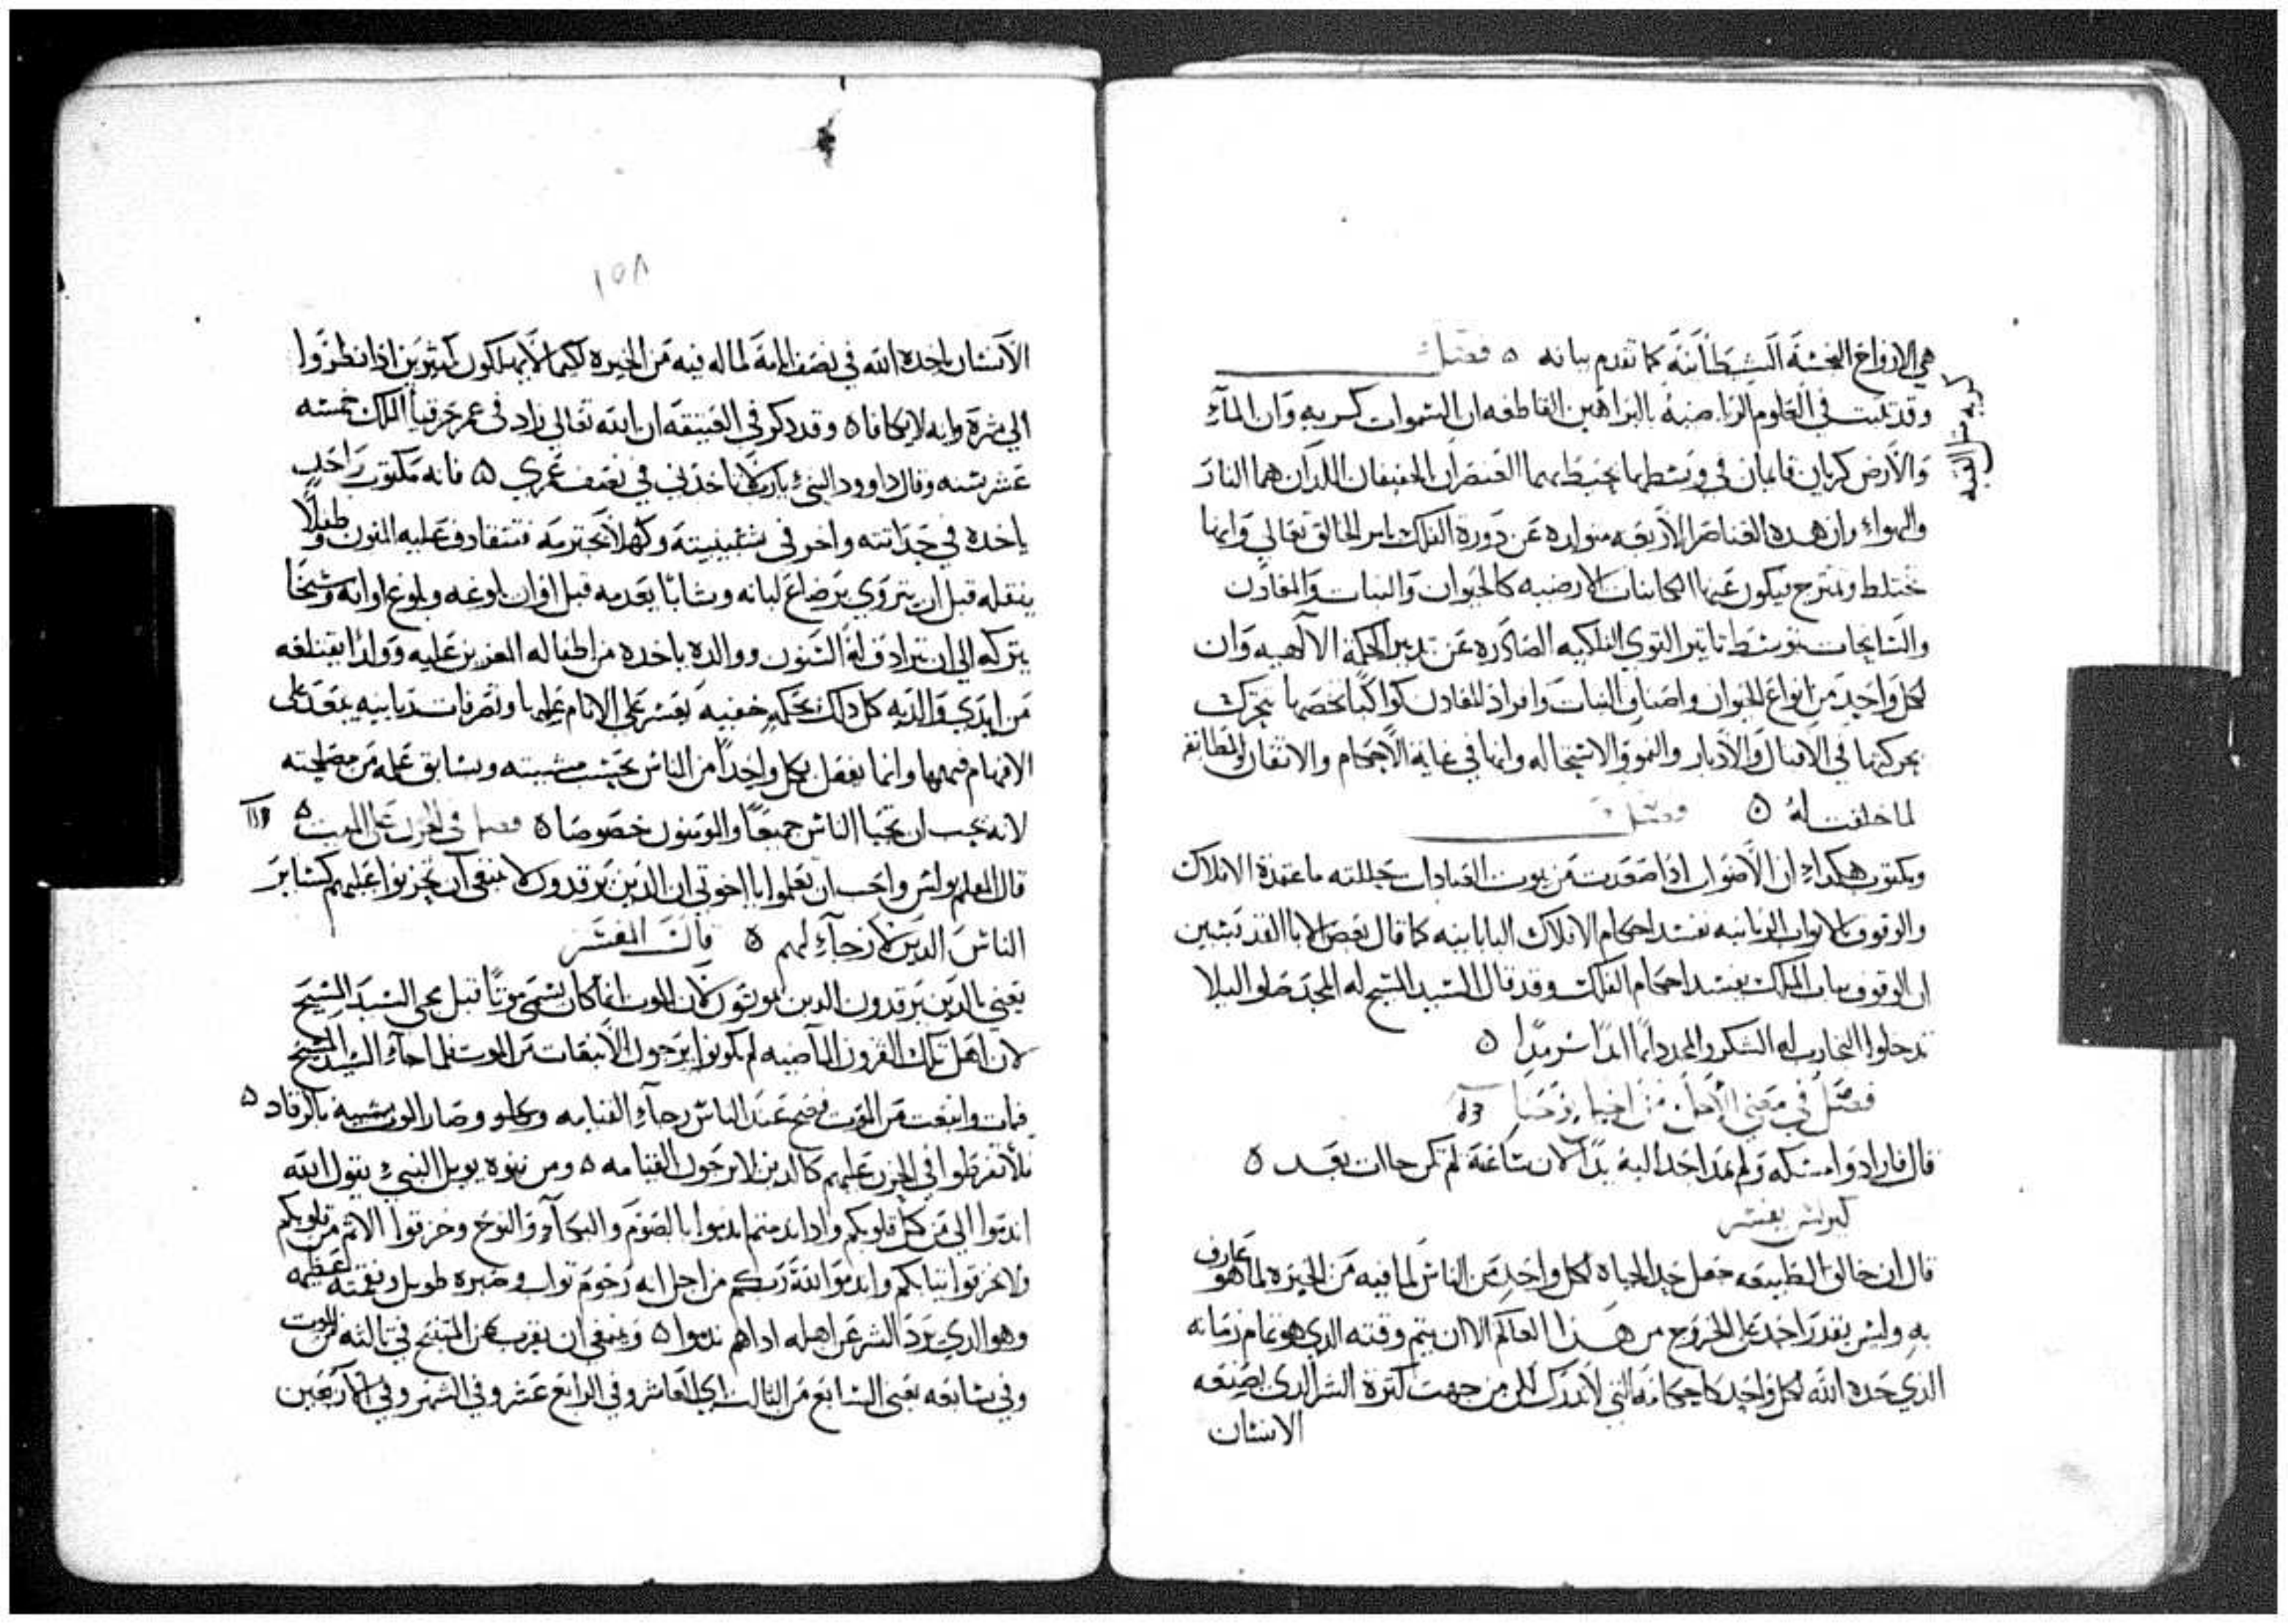 هي الارواح النجسة الشيطانية كما تقدم بيانه ٥ فصل
وقد تبت في العلوم الرياضية بالبراهين القاطعه ان السموات كريه وان الماء
والارض كريان قايمان في وسطها يحيط بهما العنصران الخفيفان اللذان هما النار
والهواء وان هده العناصر الاربعه متولده عن دورة الفلك بامر الخالق تعالي وانها
تختلط وتمتزج ويكون عنها الكاينات الارضيه كالحيوان والنبات والمعادن
والسايحات بتوسط تاتير القوي الفلكيه الصادره عن تدبير الحكمة الالهيه وان
لكل واحد من انواع الحيوان واصناف النبات وافراد المعادن كواكبا تخصها تتحرك
بحركتها في الاقبال والادبار والنمو والاستحاله وانها في غاية الاحكام والاتقان والمطابقه
لما خلقت له ٥ فصل
ومكتوب هكداء ان الاصوات ادا صعدت من بيوت العبادات حللته ما عقدة الافلاك
والوقوف بالابواب الربانيه تفسد احكام الافلاك كما قال بعض الابا القديسين
ان الوقوف بباب الملك يفسد احكام الفلك وقد قال السيد المسيح له المجد صلوا ليلا
تدخلوا التجارب له الشكر والمجد دايما ابدا سرمدا ٥
فصل في معني الاجل من انجيل يوحنا
قال فارادوا مسكه ولم يمد احد اليه يدا لان ساعته لم تكن جاات بعد ٥
كيرلس يفسر
قال ان خالق الطبيعه جعل حد الحياه لكل واحد من الناس لما فيه من الخيره لما هو عارف
به وليس يقدر احد علي الخروج من هدا العالم الا ان يتم وقته الدي هو تمام زمانه
الدي حده الله لكل واحد كاحكامه التي لا تدرك لكن من جهت كترة الشر الدي يصنعه
الانسان
كريه مثل القبه
١٥٨
الانسان ياخده الله في نصف ايامه لما له فيه من الخيره لكيما لا يهلكون كتيرين ادا نظروا
الي شره وانه لا يكافا ٥ وقد دكر في العتيقه ان الله تعالي زاد في عمر حزقيا الملك خمسه
عشر سنه وقال داوود النبيء يارب لا تاخدني في نصف عمري ٥ فانه مكتوب واحد
ياخده في حداتته واخر في شبيبته وكهلا يخترمه فتتقادف عليه المنون وطفلا
ينقله قبل ان يتروي برضاع لبانه وشابا يعدمه قبل اوان بلوغه وبلوغ اوانه وشيخا
يتركه الي ان تترادف له السنون ووالده ياخده من اطفاله العزيزين عليه وولدا يقتلعه
من ايدي والديه كل دلك بحكمه خفيه يعسر علي الانام علمها وتصرفات ربانيه يتعدر علي
الافهام فهمها وانما يفعل بكل واحدا من الناس بحسب مشيته وسابق علمه من مصلحته
لانه يحب ان تحيا الناس جميعا والمومنون خصوصا ٥ فصل في الحزن علي الميت ٥
قال المعلم بولس واحب ان تعلموا يا اخوتي ان الدين يرقدون لا ينبغي ان تحزنوا عليهم كساير
الناس الدين لا رجاء لهم ٥ قال المفسر
يعني بالدين يرقدون الدين يموتون لان الموت انما كان يسمي موتا قبل مجي السيد المسيح
لان اهل تلك القرون الماضيه لم يكونوا يرجون الانبعات من الموت فلما جاء السيد المسيح
فمات وانبعت من الموت فصح عند الناس رجاء القيامه وصار الموت شبيه بالرقاد ٥
فلا تفرطوا في الحزن عليهم كالدين لا يرجون القيامه ٥ ومن نبوة يويل النبيء يقول الله
اندموا الي من كل قلوبكم وادا ندمتم اندموا بالصوم والبكاء والنوح وخرقوا الاتم من قلوبكم
ولا تخرقوا تيابكم واندموا لله ربكم من اجل انه رحوم تواب وصبره طويل ونعمته عظيمه
وهو الدي يرد الشر عن اهله اداهم ندموا ٥ وينبغي ان يقرب عن المتنيح في تالته للموت
وفي سابعه يعني السابع من التالت اي العاشر وفي الرابع عشر وفي الشهر وفي الاربعين